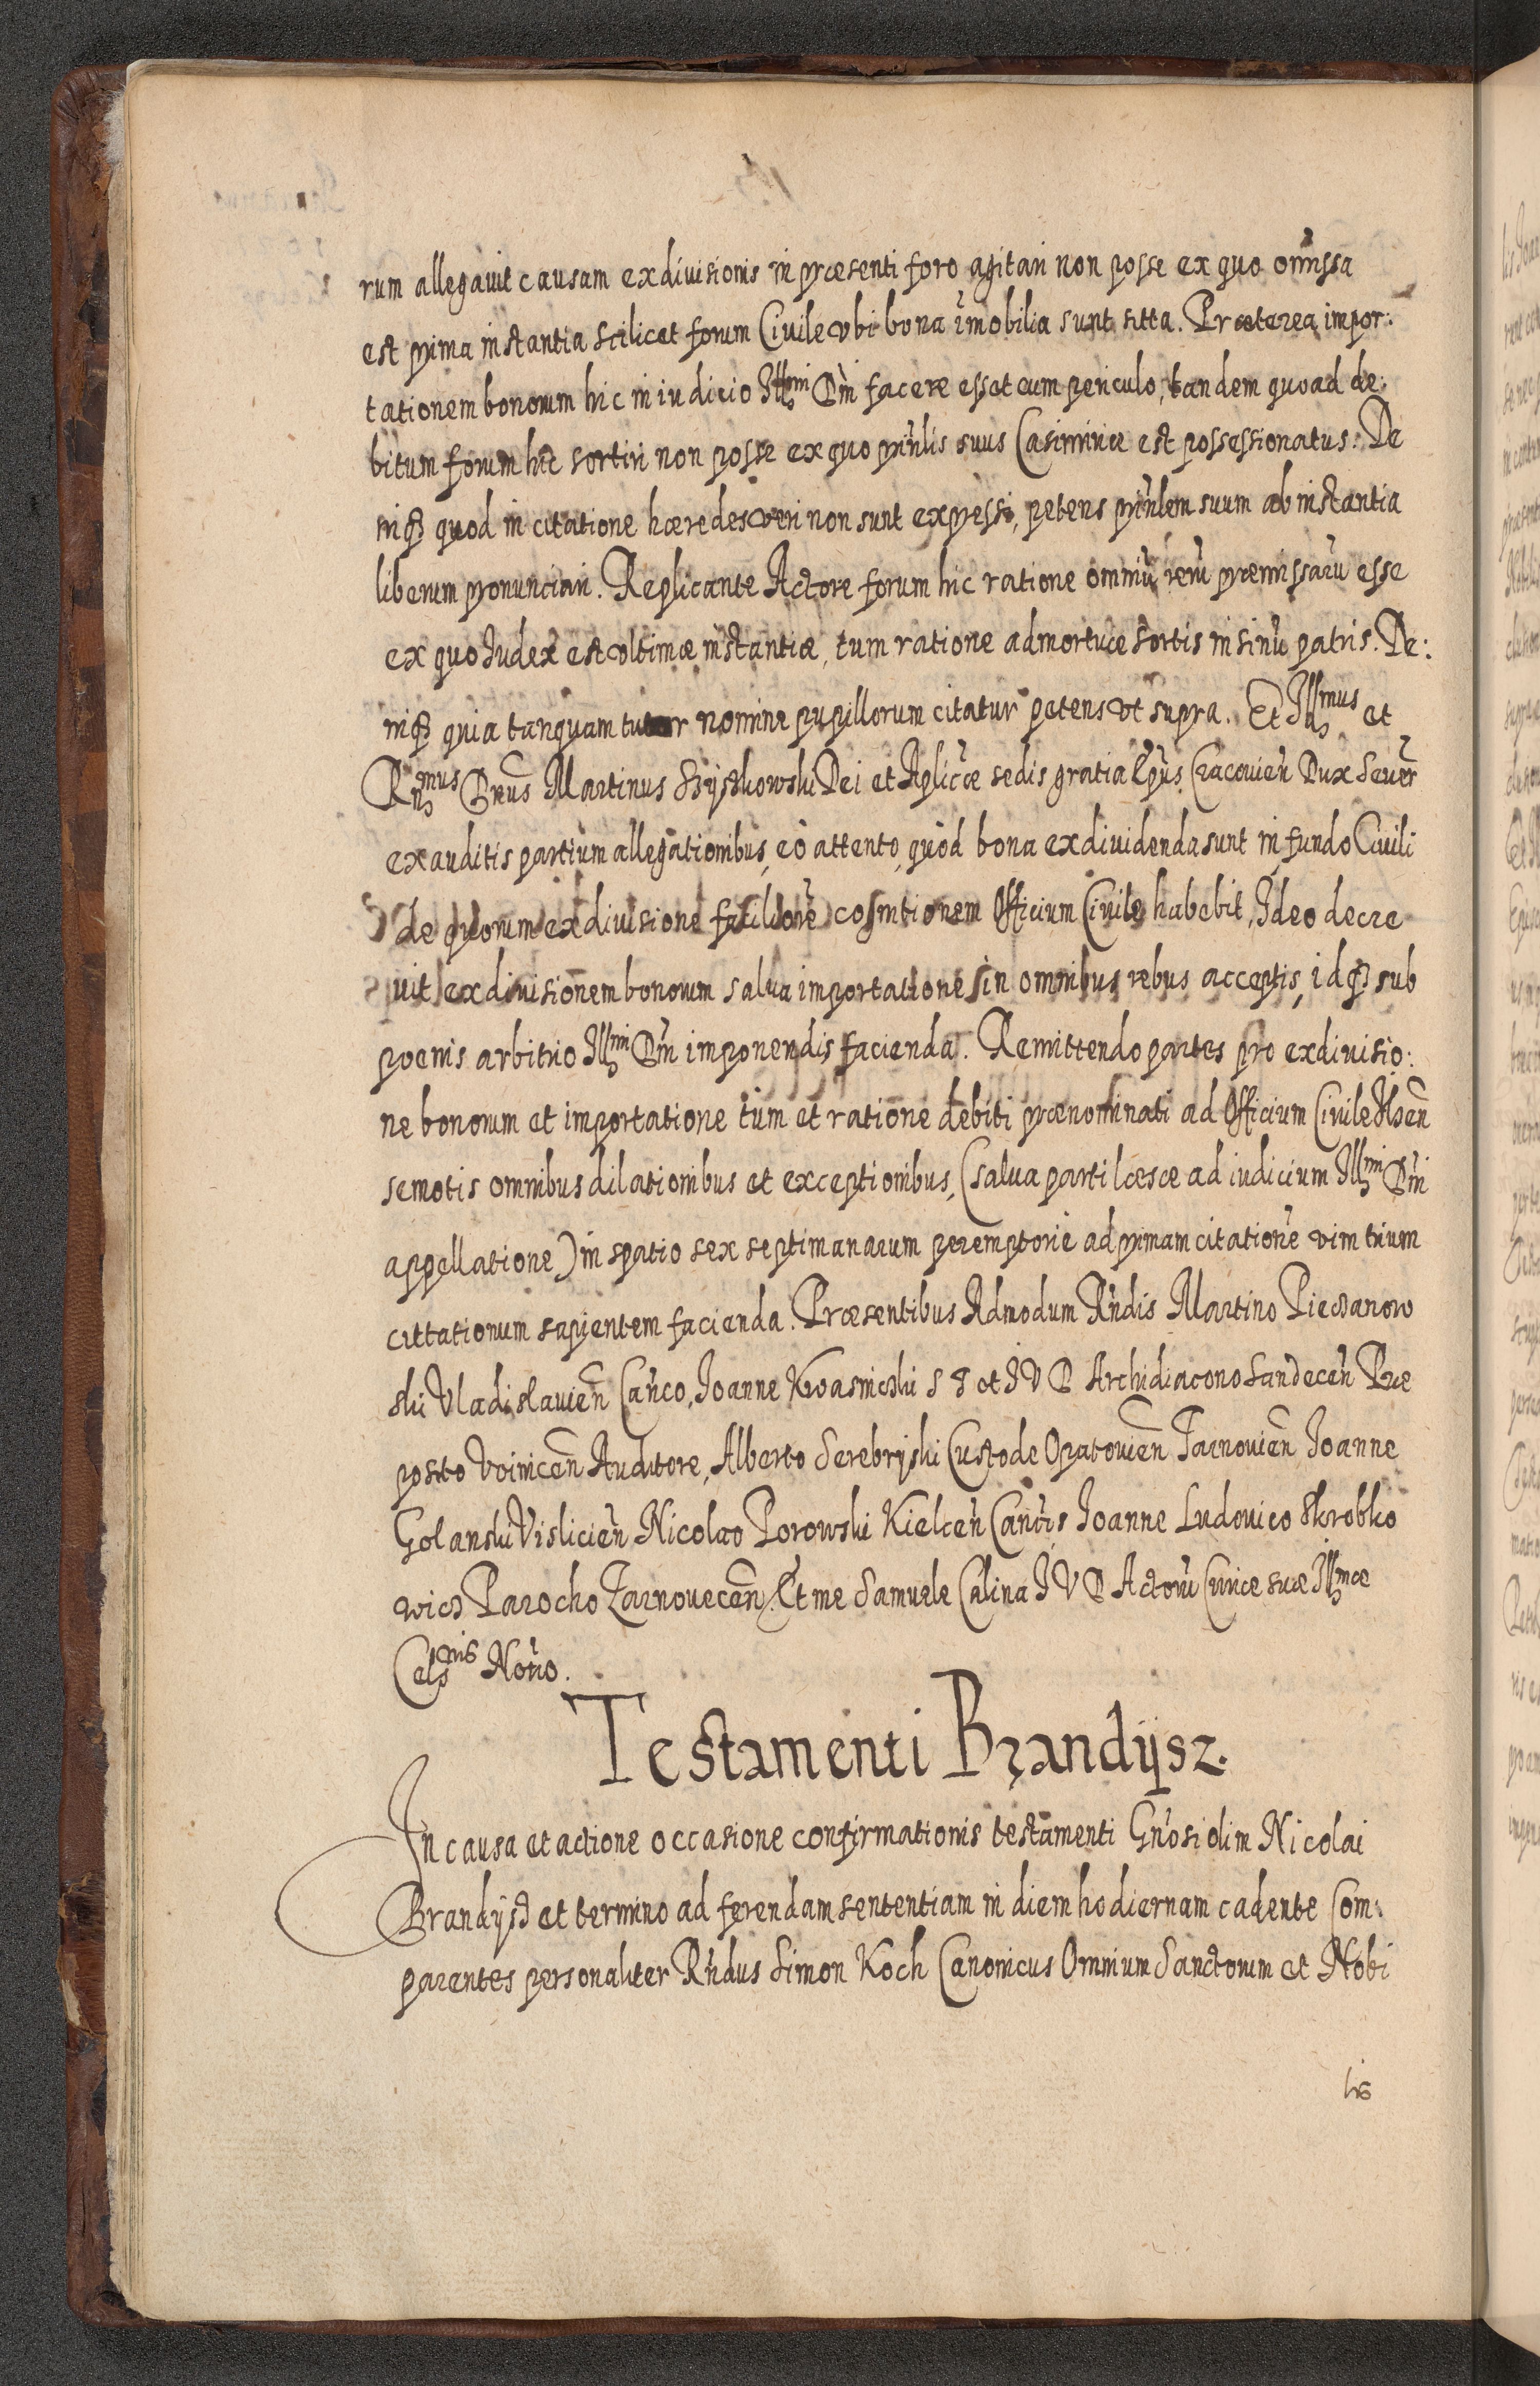 rum allegauit causam exdiuisionis in præsenti foro agitari non posse ex quo omissa
est prima instantia scilicet forum Ciuile vbi bona im̃obilia sunt sitta. Præterea impor:
tationem bonorum hic in iudicio Ill^mi Dn̄i facere esset cum periculo, tandem quoad de:
bitum forum hic sortiri non posse ex quo prin̄lis suus Casimiriæ est possessionatus. De
niq̃ quod in citatione hæredes veri non sunt expressi, petens prin̄lem suum ab instantia
liberum pronunciari. Replicante Actore forum hic ratione omniũ rerũ præmissarũ esse
ex quo Iudex est vltimæ instantiæ, tum ratione admortuæ sortis in sinu patris. De:
niq̃ quia tanquam tutor nomine pupillorum citatur petens vt supra. Et Ill^mus et
R^mus Dn̄us Martinus Szyszkowski Dei et Aplicæ sedis gratia Ep̄us Cracouien̄ Dux Seuer̄
exauditis partium allegationibus, eò attento, quòd bona exdiuidenda sunt in fundo Ciuili
de quorum exdiuisione faciliorẽ cognitionem Officium Ciuile habebit, Ideo decre
uit exdiuisionem bonorum salua importatione in omnibus rebus acceptis, idq̃ sub
poenis arbitrio Ill^mi Dn̄i imponendis facienda. Remittendo partes pro exdiuisio:
ne bonorum et importatione tum et ratione debiti prænominati ad Officium Ciuile Ilsen̄
semotis omnibus dilationibus et exceptionibus, (salua parti læsæ ad iudicium Ill^mi Dn̄i
appellatione) in spatio sex septimanarum peremptoriè ad primam citationẽ vim trium
cittationum sapientem facienda. Præsentibus Admodum Rn̄dis Martino Pieczanow
ski Vladislauien̄ Can̄co, Ioanne Kwasnicki S T et I V D Archidiacono Sandecen̄ Præ
posito Voinicen̄ Auditore, Alberto Serebryski Custode Opatouien̄ Tarnouien̄ Ioanne
Golanski Vislicien̄ Nicolao Porowski Kielcen̄ Can̄cis Ioanne Ludouico Skrobko
wicz Parocho Zarnouecen̄ Et me Samuele Calina I V D Actorũ Curiæ suæ Ill^mæ
Cels^nis Notrio.
Testamenti Brandÿsz.
In causa et actione occasione confirmationis testamenti Gn̄osi olim Nicolai
Brandysz et termino ad ferendam sententiam in diem hodiernam cadente Com:
parentes personaliter Rn̄dus Simon Koch Canonicus Omnium Sanctorum et Nobi
lis